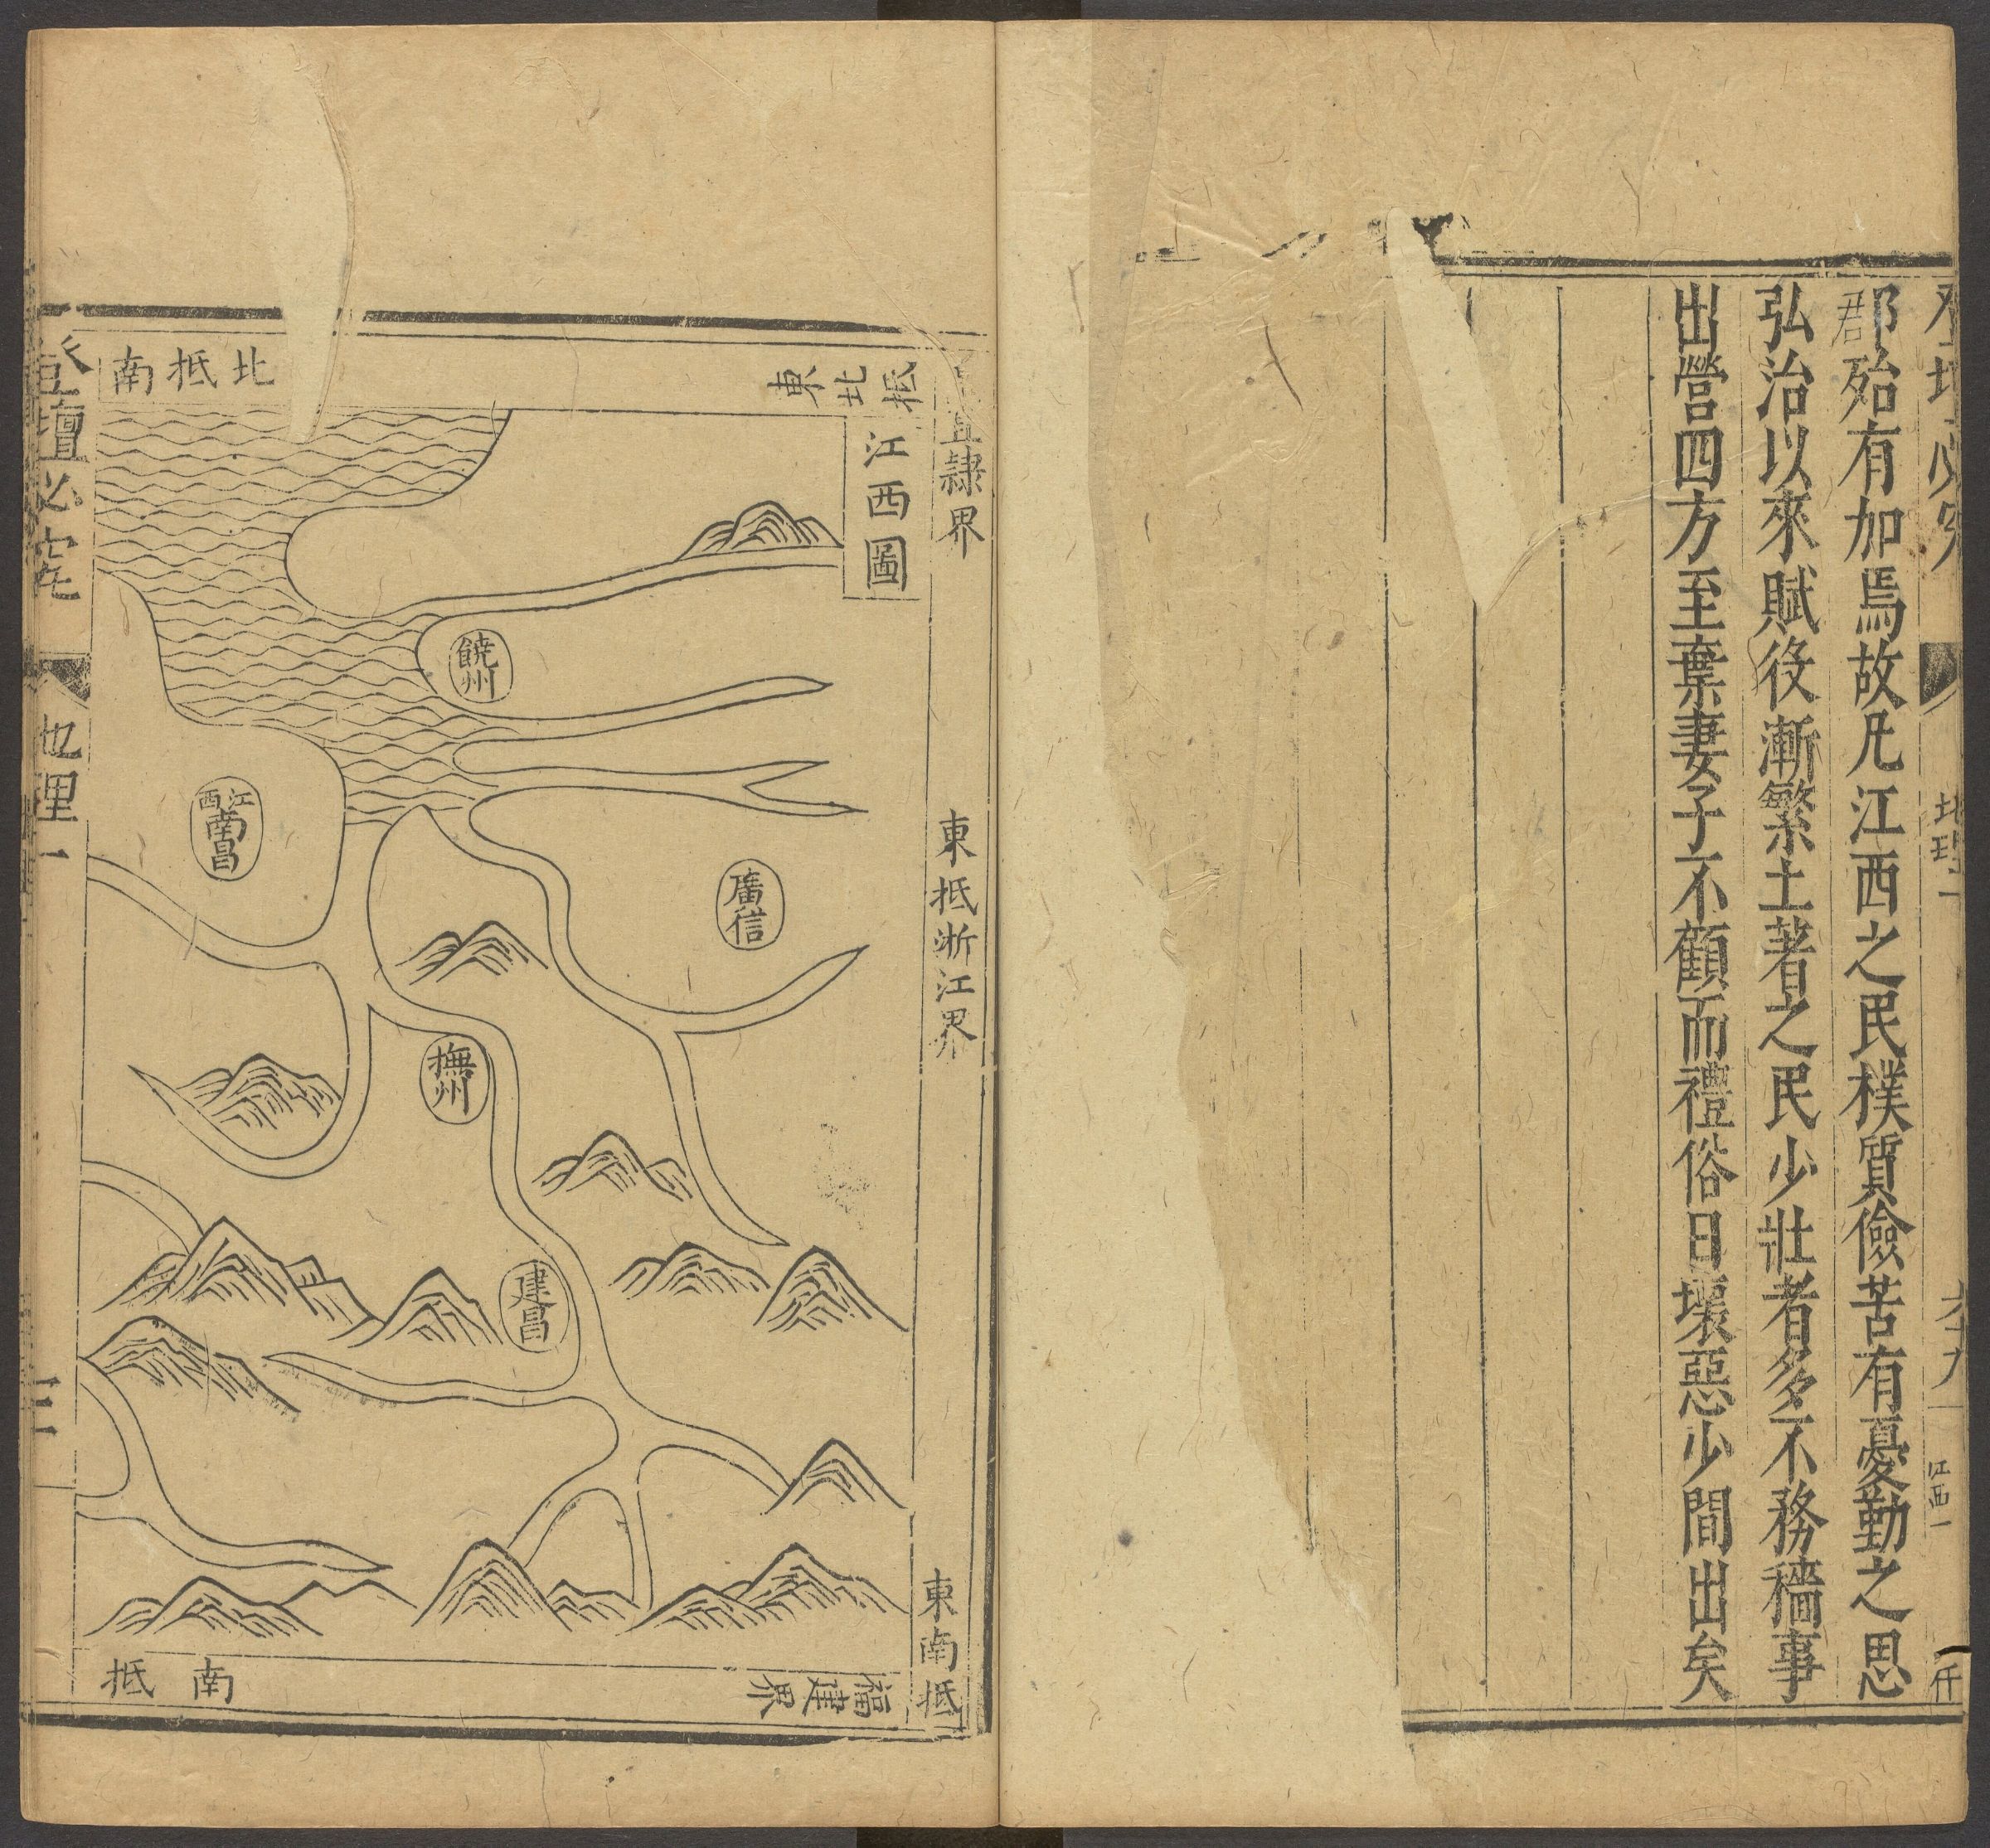 郡殆有加焉故凡江西之民樸質儉苦有憂勤之思
弘治以來賦役漸繁土著之民少壯者多不務穡事
出營四方至棄妻子不顧而禮俗日壞惡少間出矣
江西一
江西圖
東北抵
直隸界
東抵浙江界
東南抵
福建界
南抵
北抵南
饒州
江西南昌
廣信
撫州
建昌
登壇必究
地理一